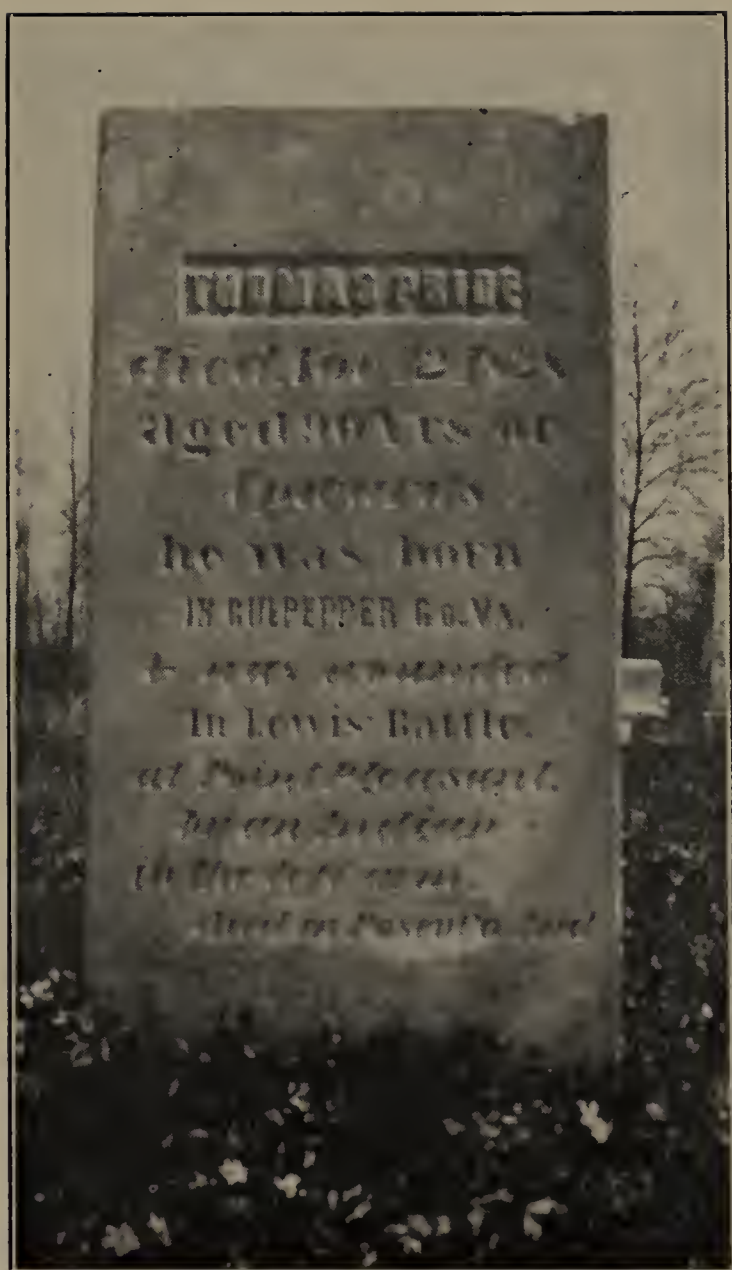 THOMAS PRIDE
died
aged 90 Yrs or
upwards
he was born
IN CULPEPPER Co. VA.
& was wounded
In Lewis' Battle,
at Point Pleasant,
by an Indian
in the left arm.
died in Posey Co. Ind